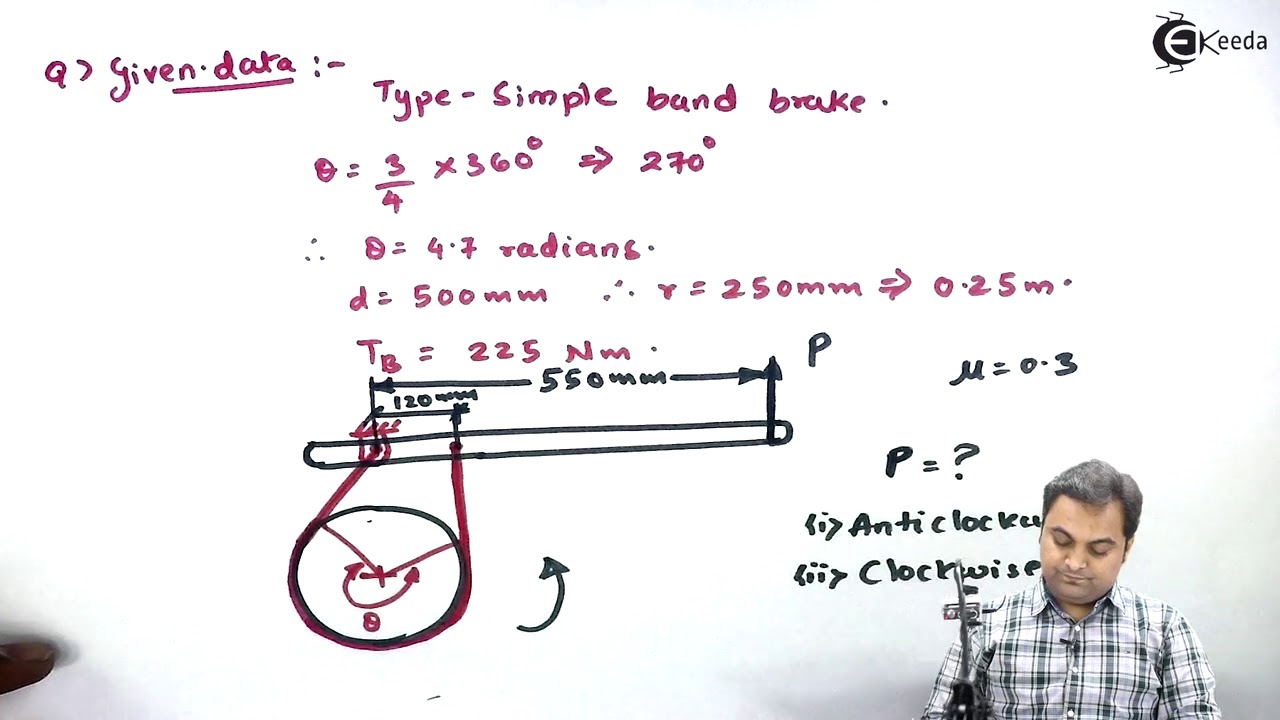 EKeeda
Q> Given data :-
Type - Simple band brake.
θ = 3/4 × 360° ⇒ 270°
∴ θ = 4.7 radians.
d = 500mm ∴ r = 250mm ⇒ 0.25m.
T_B = 225 Nm.
P
550mm
μ = 0.3
120mm
P = ?
(i) Anticlockw
(ii) Clockwise
θ